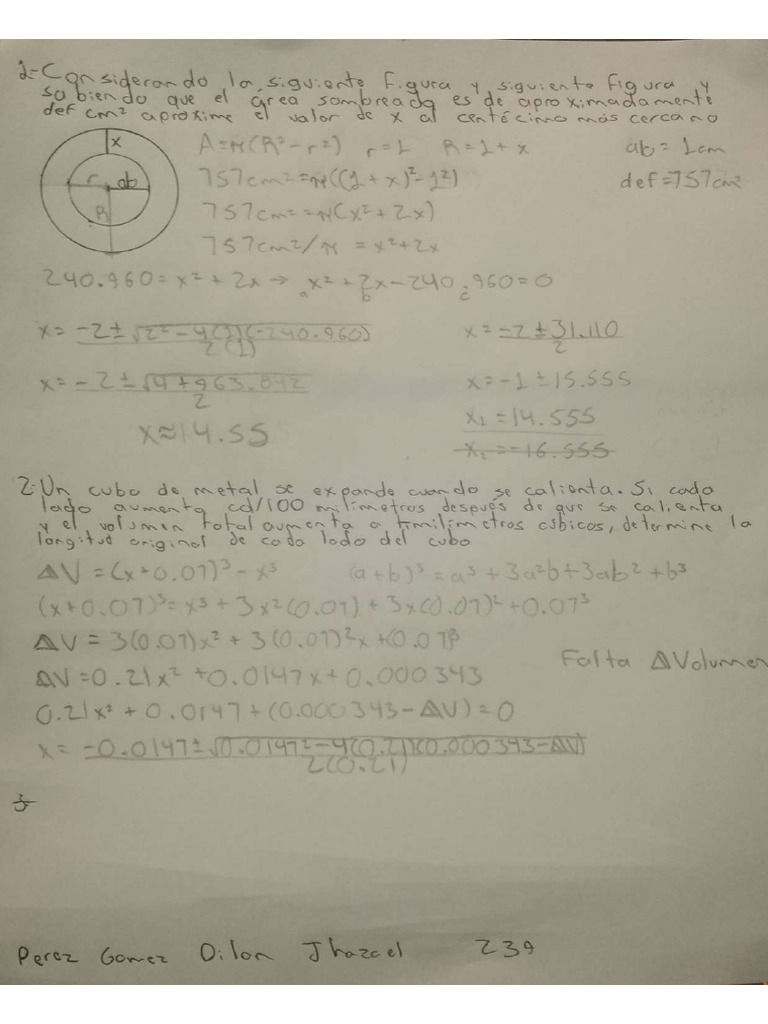 1-Considerando la siguiente figura y siguiente figura y
sabiendo que el área sombreada es de aproximadamente
def cm² aproxime el valor de x al centécimo más cercano
x
r
ab
R
A=π(R²-r²) r=1 R=1+x
ab=1cm
757cm²=π((1+x)²-1²)
def=757cm²
757cm²=π(x²+2x)
757cm²/π = x²+2x
240.960=x²+2x→ x²+2x-240.960=0
a b c
x= -2±√2²-4(1)(-240.960)
2(1)
x= -2±31.110
2
x= -2±√4+963.842
2
x=-1±15.555
x≈14.55
x₁=14.555
x₂=-16.555
2-Un cubo de metal se expande cuando se calienta. Si cada
lado aumenta cd/100 milímetros después de que se calienta
y el volumen total aumenta a milímetros cúbicos, determine la
longitud original de cada lado del cubo
ΔV=(x+0.07)³-x³ (a+b)³=a³+3a²b+3ab²+b³
(x+0.07)³=x³+3x²(0.07)+3x(0.07)²+0.07³
ΔV=3(0.07)x²+3(0.07)²x+(0.07)³
Falta ΔVolumen
ΔV=0.21x²+0.0147x+0.000343
0.21x²+0.0147+(0.000343-ΔV)=0
x= -0.0147±√(0.0147²-4(0.21)(0.000343-ΔV)
2(0.21)
3-
Perez Gomez Dilan Jhazael 239